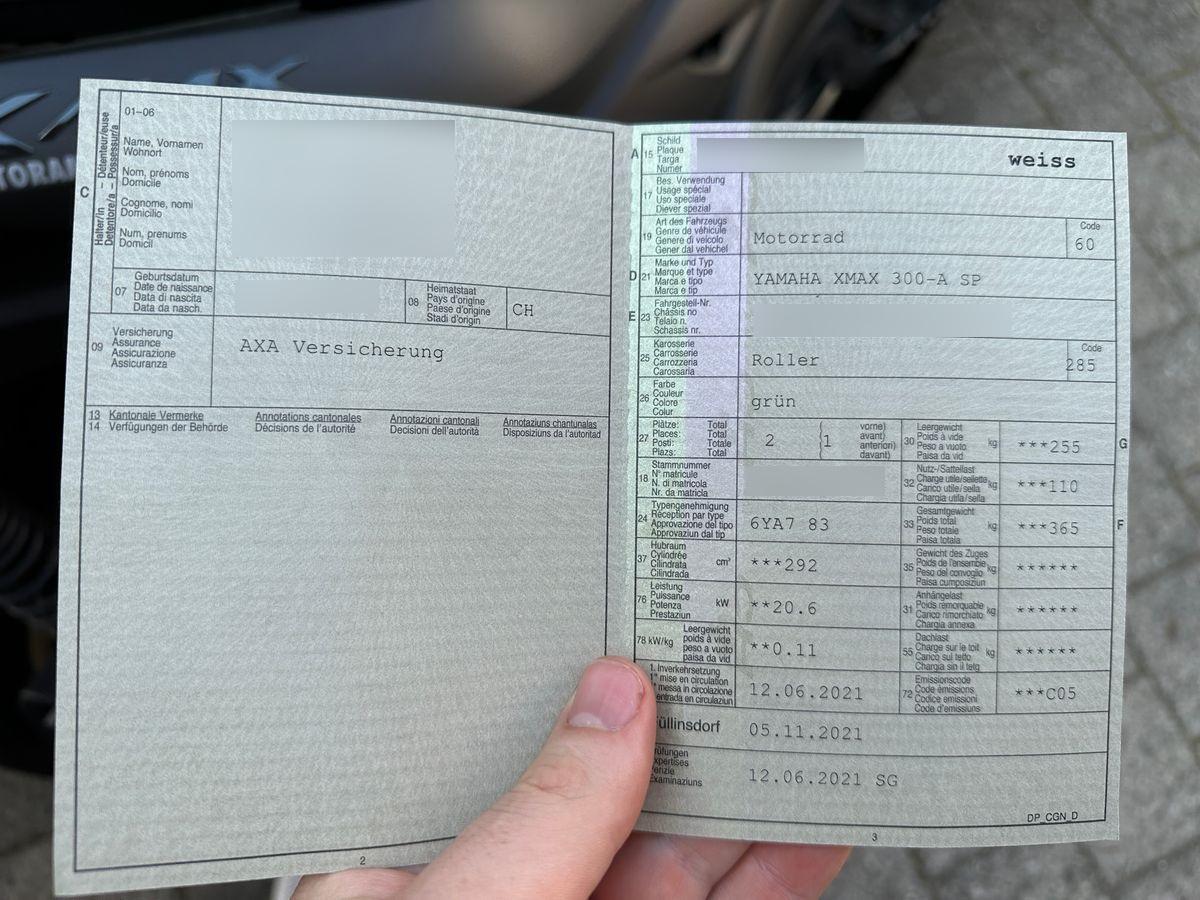 TORAN
01–06
C
Halter/in – Détenteur/euse
Detentore/a – Possessur/a
Name, Vornamen
Wohnort
Nom, prénoms
Domicile
Cognome, nomi
Domicilio
Num, prenums
Domicil
07
Geburtsdatum
Date de naissance
Data di nascita
Data da nasch.
08
Heimatstaat
Pays d'origine
Paese d'origine
Stadi d'origin
CH
09
Versicherung
Assurance
Assicurazione
Assicuranza
AXA Versicherung
13 Kantonale Vermerke Annotations cantonales Annotazioni cantonali Annotaziuns chantunalas
14 Verfügungen der Behörde Décisions de l'autorité Decisioni dell'autorità Disposiziuns da l'autoritad
2
A 15
Schild
Plaque
Targa
Numer
weiss
17
Bes. Verwendung
Usage spécial
Uso speciale
Diever spezial
19
Art des Fahrzeugs
Genre de véhicule
Genere di veicolo
Gener dal vehichel
Motorrad
Code
60
D 21
Marke und Typ
Marque et type
Marca e tipo
Marca e tip
YAMAHA XMAX 300-A SP
E 23
Fahrgestell-Nr.
Châssis no
Telaio n.
Schassis nr.
25
Karosserie
Carrosserie
Carrozzeria
Carossaria
Roller
Code
285
26
Farbe
Couleur
Colore
Colur
grün
27
Plätze: Total
Places: Total
Posti: Totale
Plazs: Total
2
1
vorne)
avant)
anteriori)
davant)
30
Leergewicht
Poids à vide
Peso a vuoto
Paisa da vid
kg
***255
G
18
Stammnummer
N° matricule
N. di matricola
Nr. da matricla
32
Nutz-/Sattellast
Charge utile/sellette
Carico utile/sella
Chargia utila/sella
kg
***110
24
Typengenehmigung
Réception par type
Approvazione del tipo
Approvaziun dal tip
6YA7 83
33
Gesamtgewicht
Poids total
Peso totale
Paisa totala
kg
***365
F
37
Hubraum
Cylindrée
Cilindrata
Cilindrada
cm³
***292
35
Gewicht des Zuges
Poids de l'ensemble
Peso del convoglio
Paisa cumposiziun
kg
******
76
Leistung
Puissance
Potenza
Prestaziun
kW
**20.6
31
Anhängelast
Poids remorquable
Carico rimorchiato
Chargia annexa
kg
******
78 kW/kg
Leergewicht
poids à vide
peso a vuoto
paisa da vid
**0.11
55
Dachlast
Charge sur le toit
Carico sul tetto
Chargia sin il tetg
kg
******
1. Inverkehrsetzung
1re mise en circulation
messa in circolazione
entrada en circulaziun
12.06.2021
72
Emissionscode
Code émissions
Codice emissioni
Code d'emissiuns
***C05
üllinsdorf
05.11.2021
rüfungen
xpertises
erizie
xaminaziuns
12.06.2021 SG
DP_CGN_D
3